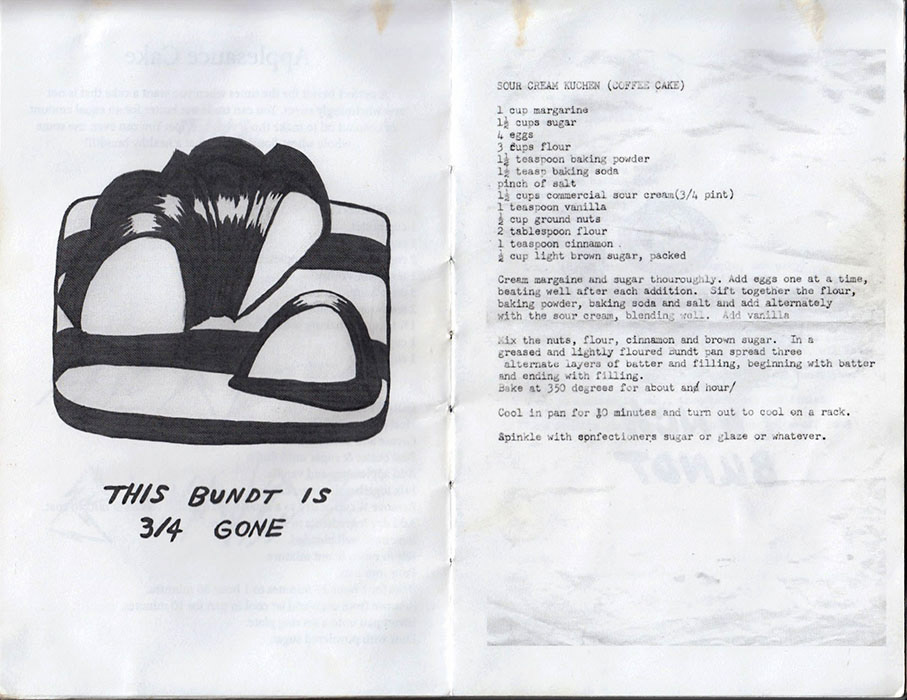 THIS BUNDT IS
3/4 GONE
SOUR CREAM KUCHEN (COFFEE CAKE)
1 cup margarine
1½ cups sugar
4 eggs
3 cups flour
1½ teaspoon baking powder
1½ teasp baking soda
pinch of salt
1½ cups commercial sour cream(3/4 pint)
1 teaspoon vanilla
½ cup ground nuts
2 tablespoon flour
1 teaspoon cinnamon
½ cup light brown sugar, packed
Cream margaine and sugar thouroughly. Add eggs one at a time,
beating well after each addition. Sift together the flour,
baking powder, baking soda and salt and add alternately
with the sour cream, blending well. Add vanilla
Mix the nuts, flour, cinnamon and brown sugar. In a
greased and lightly floured Bundt pan spread three
alternate layers of batter and filling, beginning with batter
and ending with filling.
Bake at 350 degrees for about and hour/
Cool in pan for 10 minutes and turn out to cool on a rack.
Spinkle with confectioners sugar or glaze or whatever.